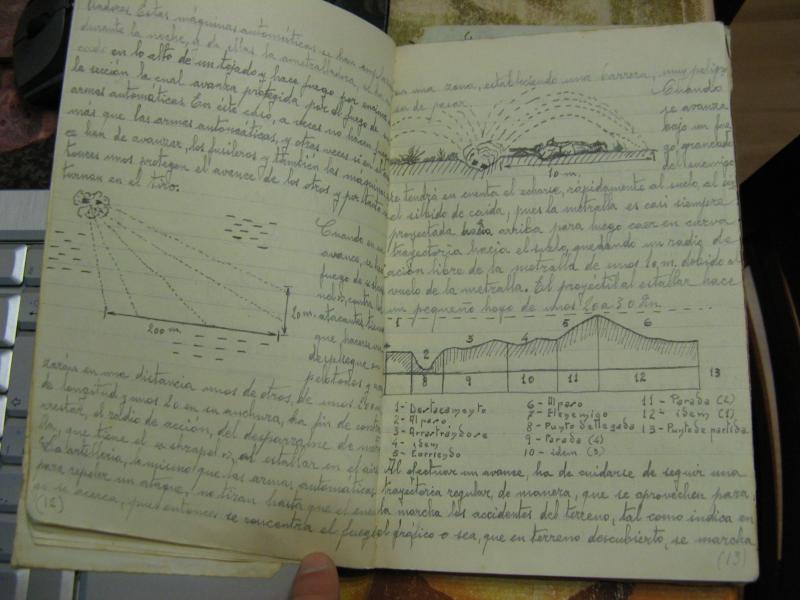 tiradores. Estas máquinas automáticas se han emplaz
durante la noche, y de ellas la ametralladora, se ha
en lo alto de un tejado y hace fuego por encima
la sección la cual avanza protegida por el fuego de
armas automáticas. En éste caso, a veces no tiran
más que las armas automáticas, y otras veces si en
se han de avanzar, los fusileros y también las máquinas
tonces unos protegen el avance de los otros y por
turnan en el tiro.
Cuando en
avance, se
fuego de
contra
20 m. atacantes
que hacerse
despliegue en
pelotones y
200 m.
zarán en una distancia unos de otros, de unos 200 m.
de longitud y unos 20 en su anchura, ha fin de
restar, el radio de acción, del desparrame de
lla, que tiene el shrapel, al estallar en el aire
La artillería, lo mismo que las armas automáticas,
para repeler un ataque, no tiran hasta que el
se acerca, pues entonces se concentra el fuego
(12)
una zona, estableciendo una barrera, muy
de pasar.
Cuando
se avanza
bajo un fue
go graneado
del enemigo
10 m.
se tendrá en cuenta el echarse, rápidamente al suelo, al
el silbido de caida, pues la metralla es casi siempre
proyectada hacia arriba para luego caer en curva
trayectoria hacia el suelo, quedando un radio de
acción libre de la metralla de unos 10 m. debido al
vuelo de la metralla. El proyectil al estallar hace
un pequeño hoyo de unos 20 a 30 cm.
1 2 3 4 5 6
8 9 10 11 12 13
1- Destacamento
2- Alparo
3- Arrastrándose
4- idem
5- Corriendo
6- Alparo
7- El enemigo
8- Punto de llegada
9- Parada (4)
10- idem (3)
11- Parada (2)
12- idem (1)
13- Punto de partida
Al efectuar un avance, ha de cuidarse de seguir una
trayectoria regular, de manera, que se aprovechen para,
la marcha los accidentes del terreno, tal como indica en
el gráfico o sea, que en terreno descubierto, se marcha
(13)